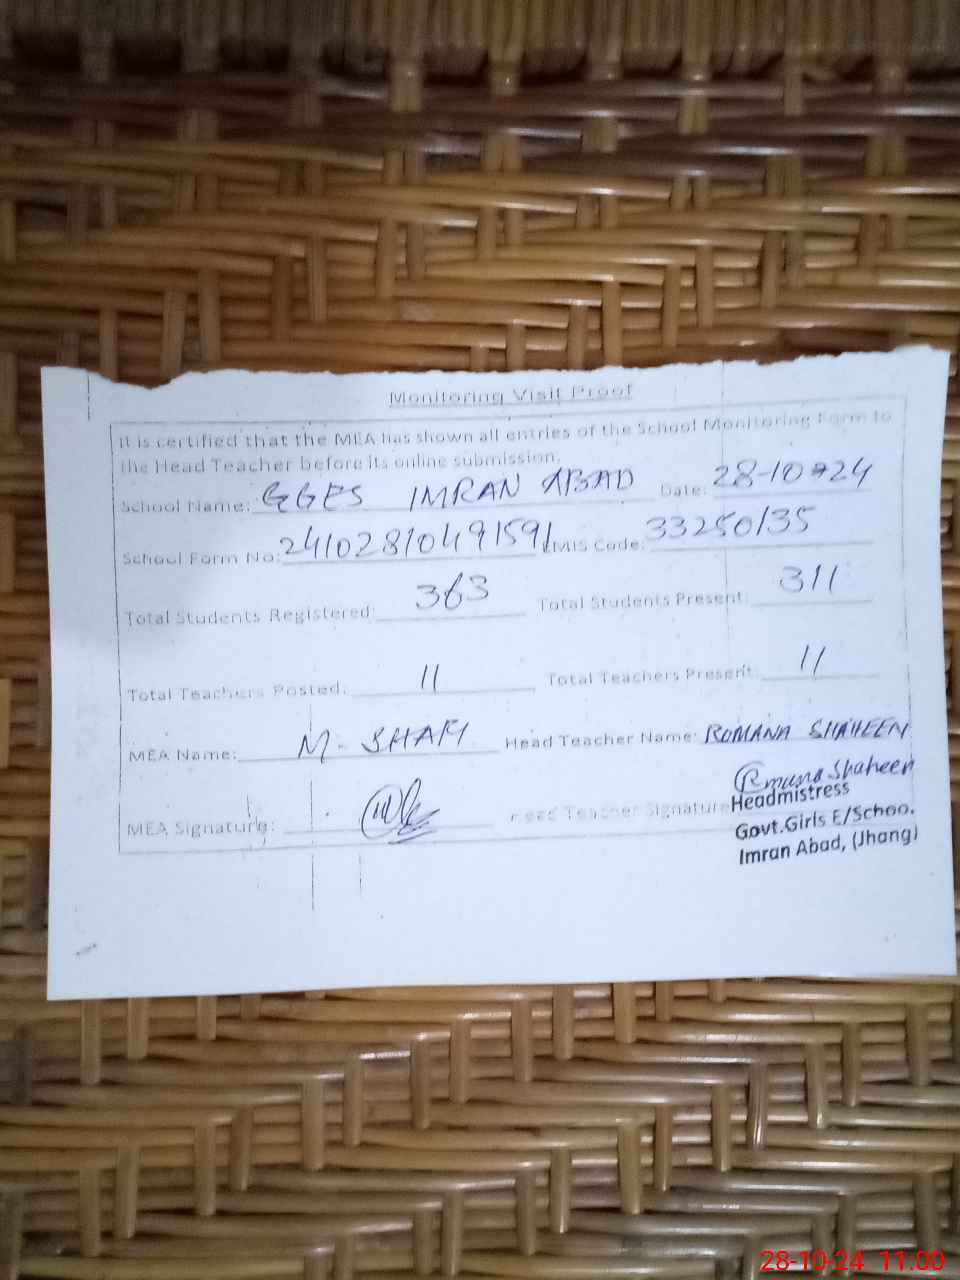 Monitoring Visit Proof
It is certified that the MEA has shown all entries of the School Monitoring Form to
the Head Teacher before its online submission.
School Name: GGES IMRAN ABAD Date: 28-10-24
School Form No: 24102810491591 EMIS Code: 33250135
Total Students Registered: 363 Total Students Present: 311
Total Teachers Posted: 11 Total Teachers Present: 11
MEA Name: M. SHAFI Head Teacher Name: ROMANA SHAHEEN
MEA Signature: Head Teacher Signature Romana Shaheen
Headmistress
Govt.Girls E/School
Imran Abad, (Jhang)
28-10-24 11:00